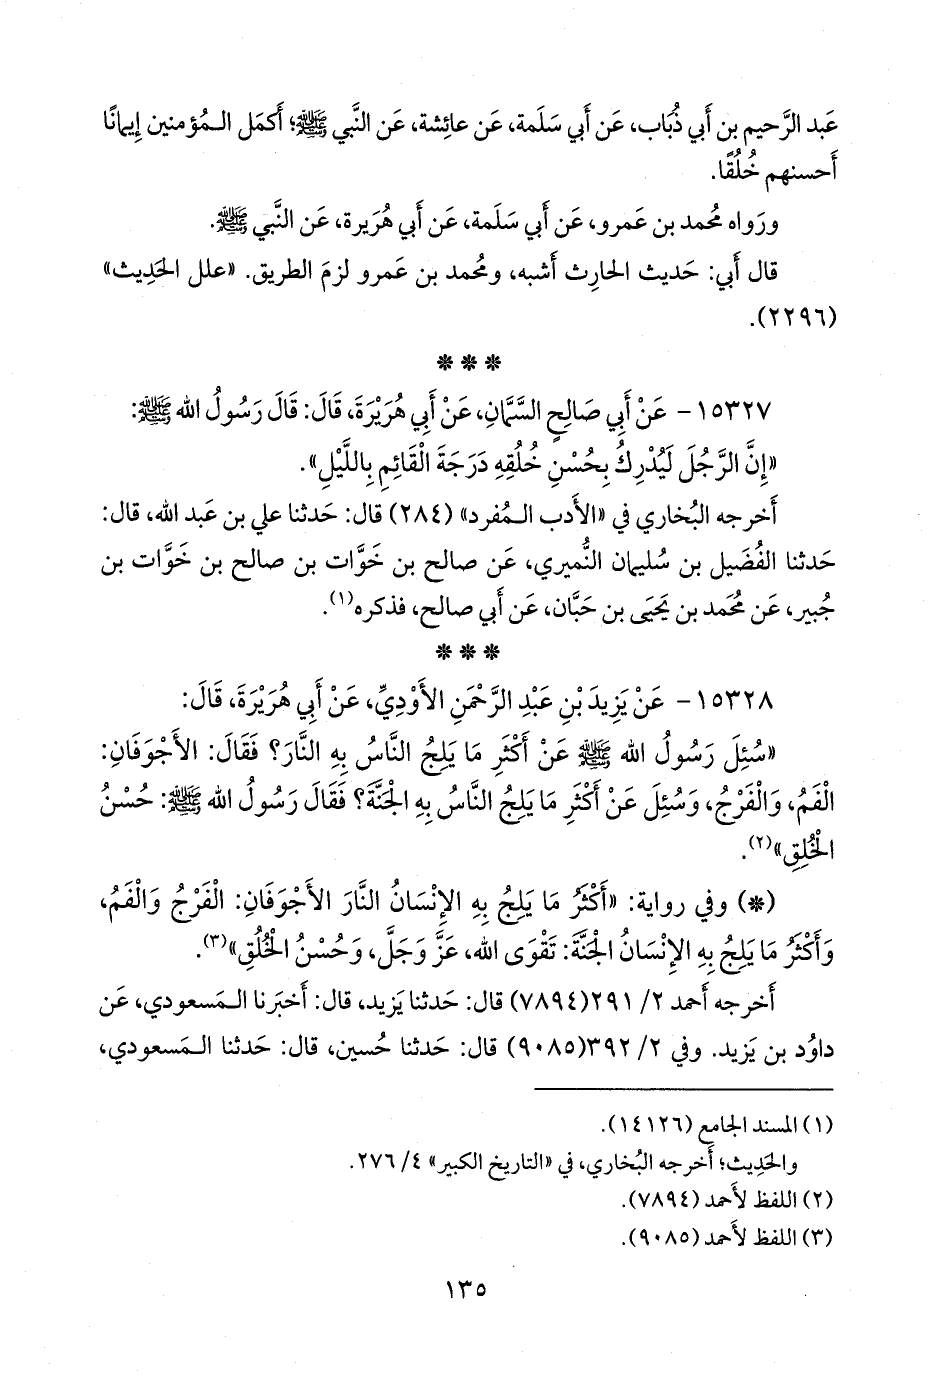 عَبد الرَّحيم بن أَبي ذُبَاب، عَن أَبي سَلَمة، عَن عائِشة، عَن النَّبي ﷺ؛ أَكمَل الـمُؤمنين إِيمانًا
أَحسنهم خُلُقًا.
ورَواه مُحمد بن عَمرو، عَن أَبي سَلَمة، عَن أَبي هُرَيرة، عَن النَّبي ﷺ.
قال أَبي: حَديث الحارِث أَشبه، ومُحمد بن عَمرو لزمَ الطريق. «علل الحَدِيث»
(٢٢٩٦).
* * *
١٥٣٢٧- عَنْ أَبِي صَالِحٍ السَّمَّانِ، عَنْ أَبِي هُرَيْرَةَ، قَالَ: قَالَ رَسُولُ الله ﷺ:
«إِنَّ الرَّجُلَ لَيُدْرِكُ بِحُسْنِ خُلُقِهِ دَرَجَةَ الْقَائِمِ بِاللَّيْلِ».
أَخرجه البُخاري في «الأَدب الـمُفرد» (٢٨٤) قال: حَدثنا علي بن عَبد الله، قال:
حَدثنا الفُضَيل بن سُليمان النُّميري، عَن صالح بن خَوَّات بن صالح بن خَوَّات بن
جُبير، عَن مُحَمد بن يَحيَى بن حَبَّان، عَن أَبي صالح، فذكره(١).
* * *
١٥٣٢٨- عَنْ يَزِيدَ بْنِ عَبْدِ الرَّحْمَنِ الأَوْدِيِّ، عَنْ أَبِي هُرَيْرَةَ، قَالَ:
«سُئِلَ رَسُولُ الله ﷺ عَنْ أَكْثَرِ مَا يَلِجُ النَّاسُ بِهِ النَّارَ؟ فَقَالَ: الأَجْوَفَانِ:
الْفَمُ، وَالْفَرْجُ، وَسُئِلَ عَنْ أَكْثَرِ مَا يَلِجُ النَّاسُ بِهِ الْجَنَّةَ؟ فَقَالَ رَسُولُ الله ﷺ: حُسْنُ
الْخُلِقِ»(٢).
(*) وفي رواية: «أَكْثَرُ مَا يَلِجُ بِهِ الإِنْسَانُ النَّارَ الأَجْوَفَانِ: الْفَرْجُ وَالْفَمُ،
وَأَكْثَرُ مَا يَلِجُ بِهِ الإِنْسَانُ الْجَنَّةَ: تَقْوَى الله، عَزَّ وَجَلَّ، وَحُسْنُ الْخُلُقِ»(٣).
أَخرجه أَحمد ٢/ ٢٩١(٧٨٩٤) قال: حَدثنا يَزيد، قال: أَخبَرنا الـمَسعودي، عَن
داوُد بن يَزيد. وفي ٢/ ٣٩٢(٩٠٨٥) قال: حَدثنا حُسين، قال: حَدثنا الـمَسعودي،
(١) المسند الجامع (١٤١٢٦).
والحَدِيث؛ أَخرجه البُخاري، في «التاريخ الكبير» ٤/ ٢٧٦.
(٢) اللفظ لأَحمد (٧٨٩٤).
(٣) اللفظ لأَحمد (٩٠٨٥).
١٣٥